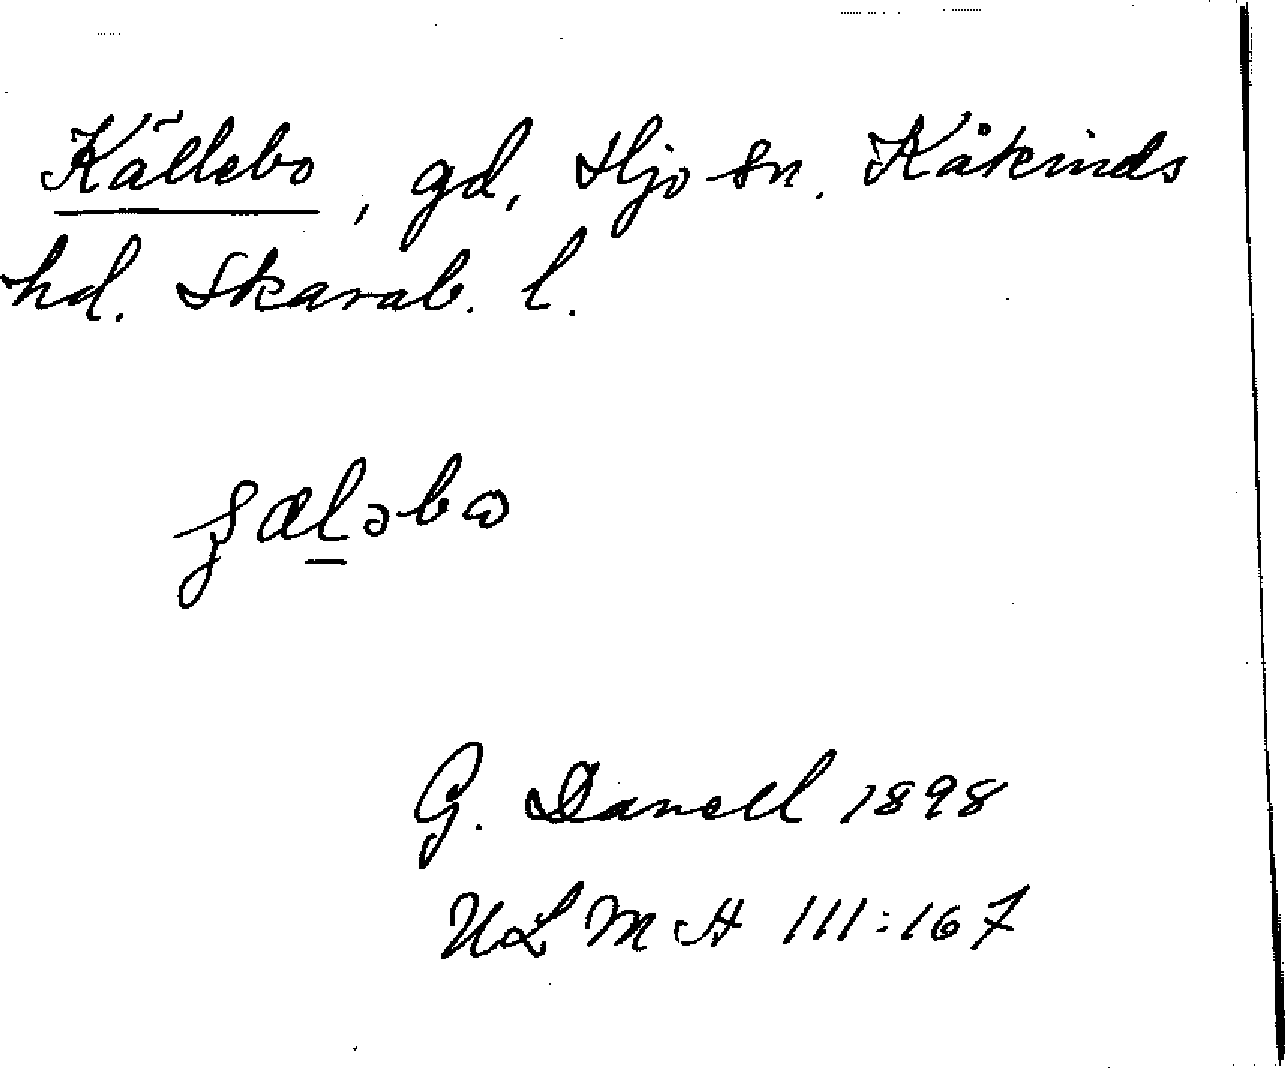 Källebo, gd, Hjo sn. Kåkinds
hd. Skarab. l.
ʂæl̲əbω
G. Danell 1898
ULMA 111:167